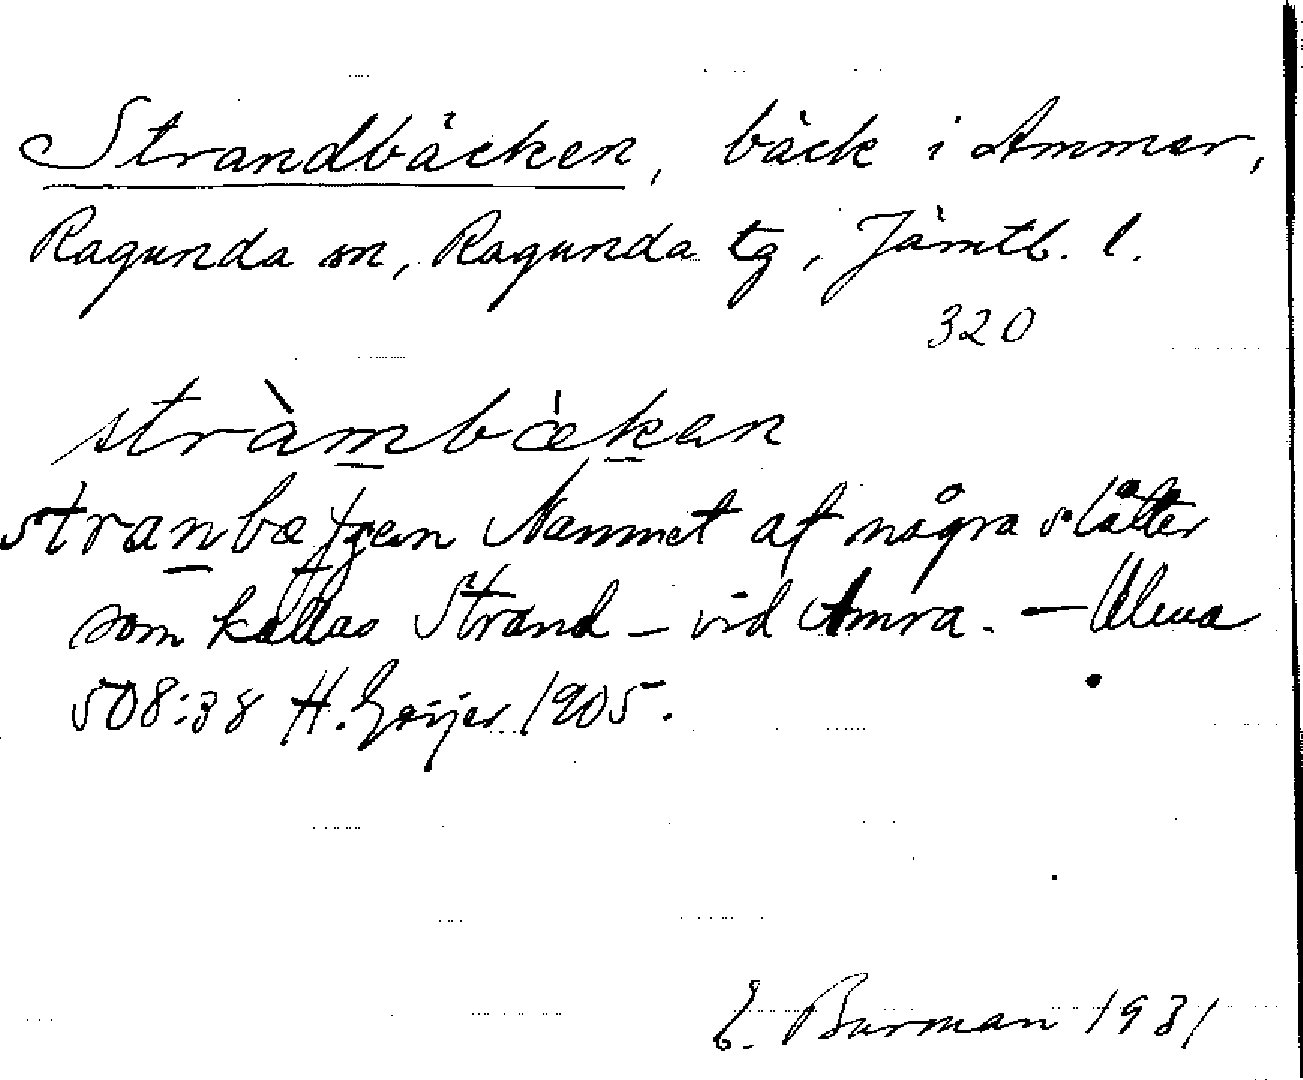 Strandbäcken, bäck i Ammer,
Ragunda sn, Ragunda tg, Jämtl. l.
320
stràmbækan
Namnet af några slåtter
som kallas Strand – vid Amra. – Uluna
508:38 H. Geijer 1905.
E. Burman 1931